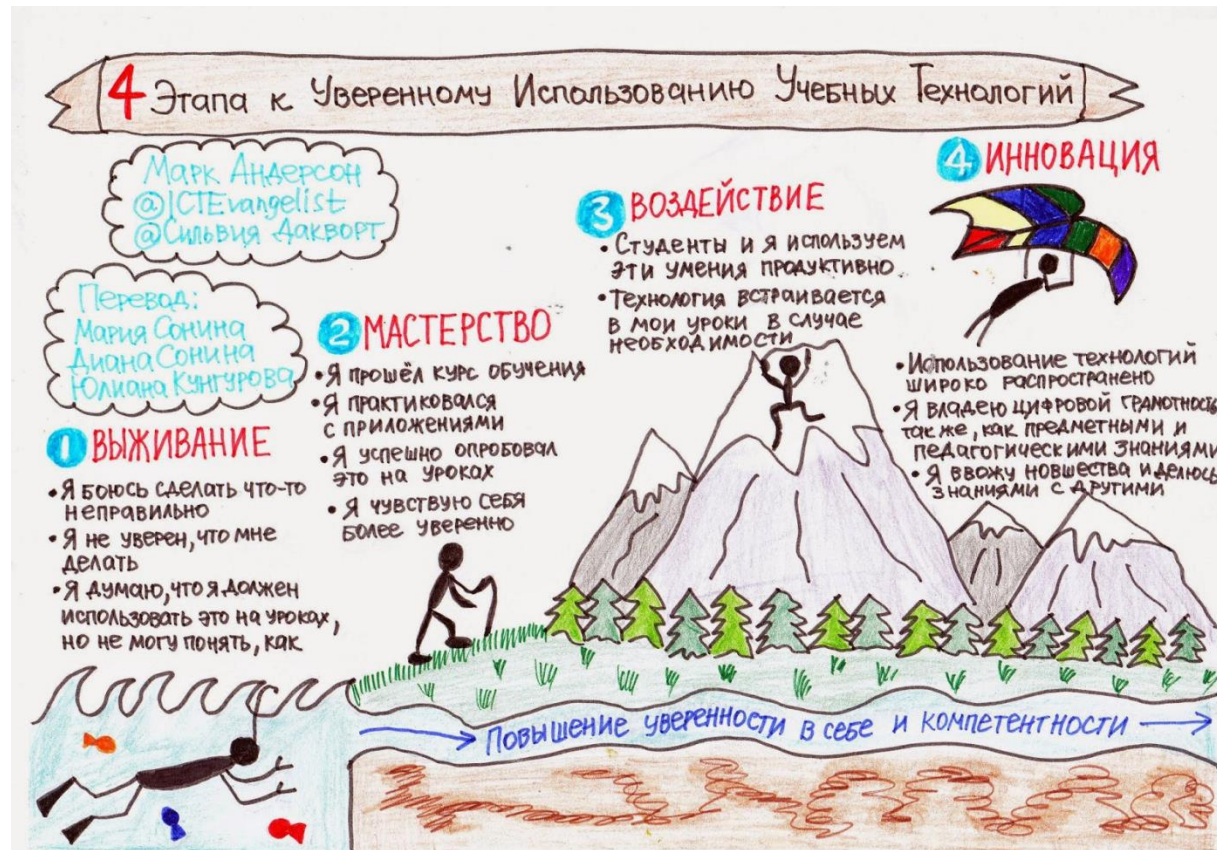 4 Этапа к Уверенному Использованию Учебных Технологий
Марк Андерсон
@ICTEvangelist
@Сильвия Дакворт
Перевод:
Мария Сонина
Диана Сонина
Юлиана Кунгурова
1 ВЫЖИВАНИЕ
• Я боюсь сделать что-то
неправильно
• Я не уверен, что мне
делать
• Я думаю, что я должен
использовать это на уроках,
но не могу понять, как
2 МАСТЕРСТВО
• Я прошёл курс обучения
• Я практиковался
с приложениями
• Я успешно опробовал
это на уроках
• Я чувствую себя
более уверенно
3 ВОЗДЕЙСТВИЕ
• Студенты и я используем
эти умения продуктивно
• Технология встраивается
в мои уроки в случае
необходимости
4 ИННОВАЦИЯ
• Использование технологий
широко распространено
• Я владею цифровой грамотность
также, как предметными и
педагогическими знаниями
• Я ввожу новшества и делюсь
знаниями с другими
Повышение уверенности в себе и компетентности